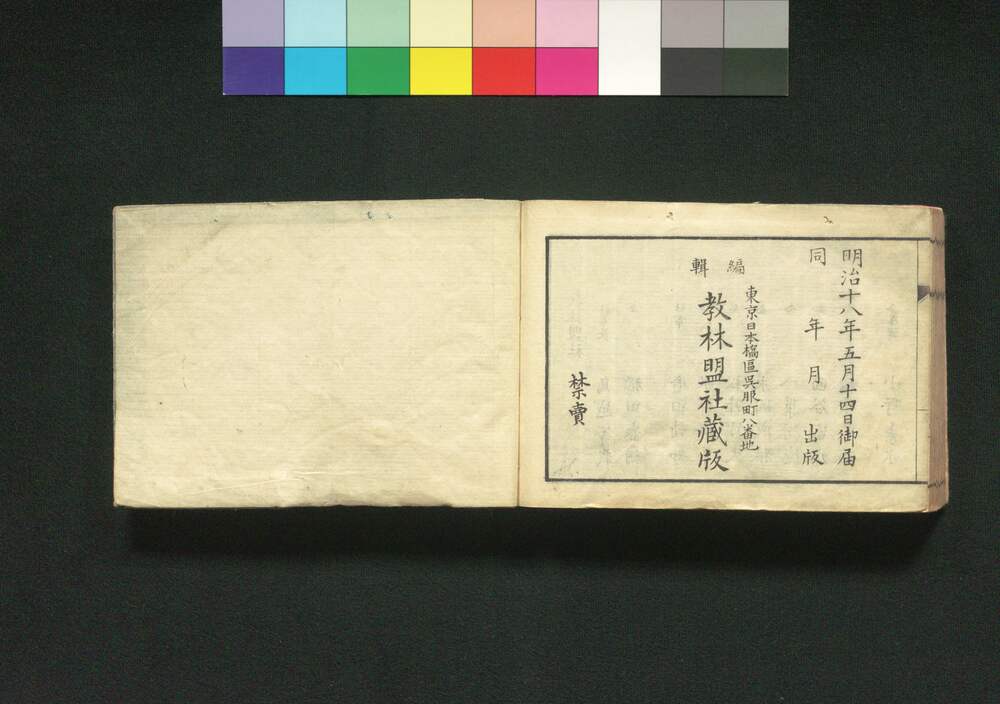 明治十八年五月十四日御届
同年月出版
東京日本橋區呉服町八番地
編輯
教林盟社藏版
禁賣